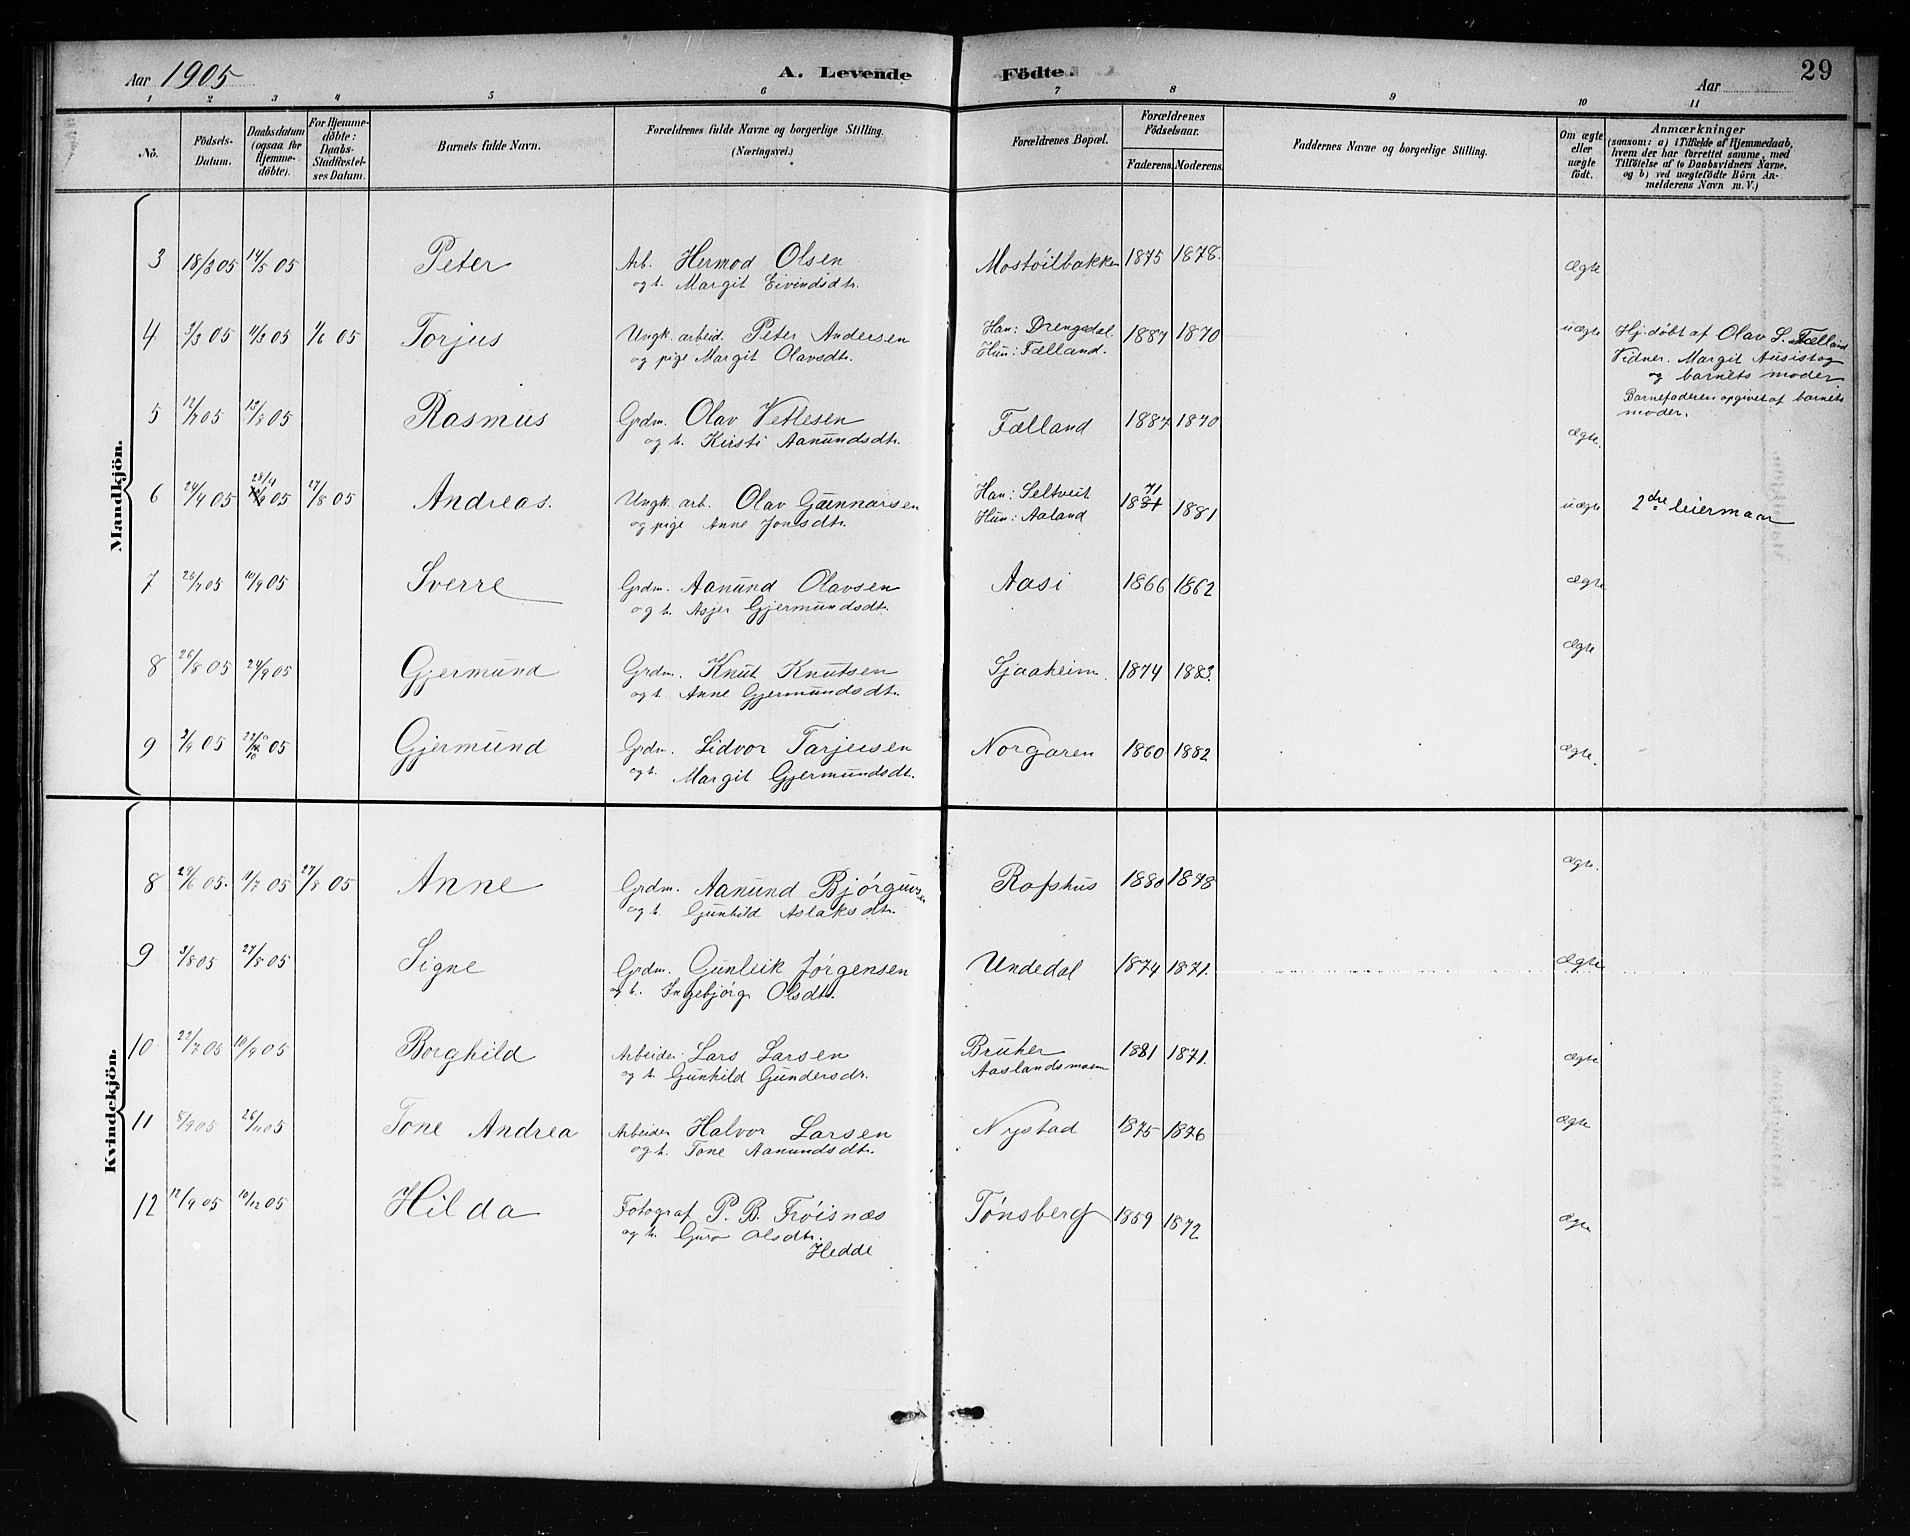 Aar 1905 A. Levende Födte. Aar 29
1 2 3 4 5 6 7 8 9 10 11
No. Födsels-Datum. Daabsdatum (ogsaa for Hjemmedöbte). For Hjemmedöbte: Daabs-Stadfæstelses Datum. Barnets fulde Navn. Forældrenes fulde Navne og borgerlige Stilling. (Næringsvei.) Forældrenes Bopæl. Forældrenes Födselsaar. Faderens. Moderens. Faddernes Navne og borgerlige Stilling. Om ægte eller uægte födt. Anmærkninger (saasom: a) i Tilfælde af Hjemmedaab, hvem der har forrettet samme, med Tilföielse af to Daabsvidners Navne, og b) ved uægtefödte Börn Anmelderens Navn m. V.)
Mandkjön.
3 18/3 05 14/5 05 Peter Arb. Hermod Olsen Mostøilbakken 1875 1878. Ægte
og h. Margit Eivindsdtr.
4 3/3 05 11/3 05 1/6 05 Torjus Ungk. arbeid. Peter Andersen Han: Drengedal 1887 1870 uægte Hj. døbt af Olav S. Fælland
og pige Margit Olavsdtr. Hun: Fælland. Vidner. Margit Ausistog
og barnets moder.
Barnefaderen opgivet af barnets
moder.
5 12/7 05 13/8 05 Rasmus Grdm. Olav Vetlesen Fælland 1887 1870 ægte.
og h. Kirsti Aanundsdtr.
6 24/4 05 05 27/8 05 Andreas. Ungk. arb. Olav Gunnarsen Han: Seltveit 1871 1881 uægte 2dre leiermaar
og pige Anne Jonsdtr. Hun: Aaland
7 25/7 05 10/9 05 Sverre Grdm. Aanund Olavsen Aasi 1866 1862 Ægte
og h. Asjer Gjermundsdtr.
8 26/8 05 24/9 05 Gjermund Grdm. Knut Knutsen Sjaaheim 1874 1883. Ægte
og h. Anne Gjermundsdtr.
9 3/9 05 05 Gjermund Grdm. Sidvor Tarjeisen Norgaren 1860 1882 Ægte.
og h. Margit Gjermundsdtr.
Kvindekjön.
8 29/6 05. 11/7 05 27/8 05 Anne Grdm. Aanund Bjørguvsen Rofshus 1880 1878 ægte.
og h. Gunhild Aslaksdtr.
9 3/8 05 27/8 05 Signe Grdm. Gunleik Jørgensen Undedal 1874 1871. Ægte
og h. Ingebjørg Olsdtr.
10 22/7 05 10/9 05 Borghild Arbeider Lars Larsen Bruker 1881 1871. ægte
og h. Gunhild Gundersdr. Aaslandsmoen
11 8/9 05 26/11 05 Tone Andrea Arbeider Halvor Larsen Nystad 1875 1876 Ægte
og h. Tone Aanundsdtr.
12 12/9 05 10/12 05 Hilda Fotograf P. B. Frøisnæs Tønsberg 1859 1872 ægte
og h. Guro Olsdtr.
Hedde